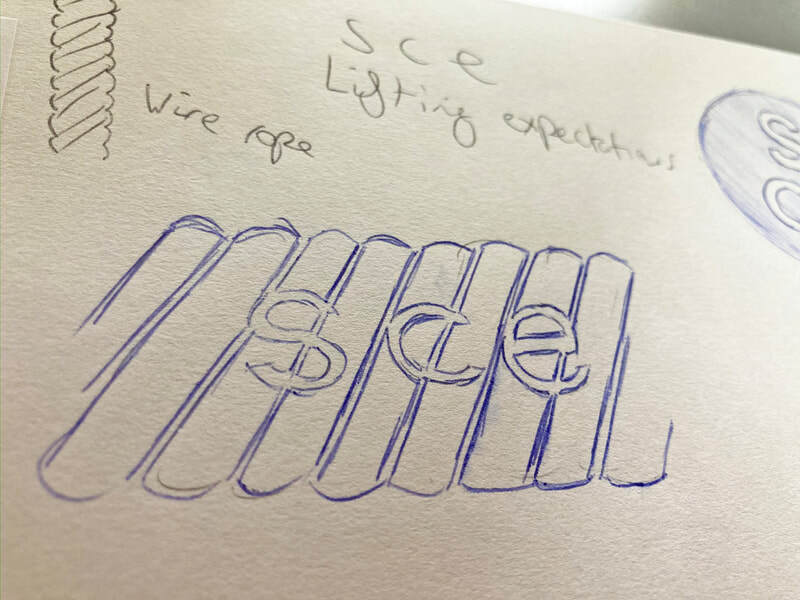 sce
Lifting expectations
Wire rope
S
C
sce